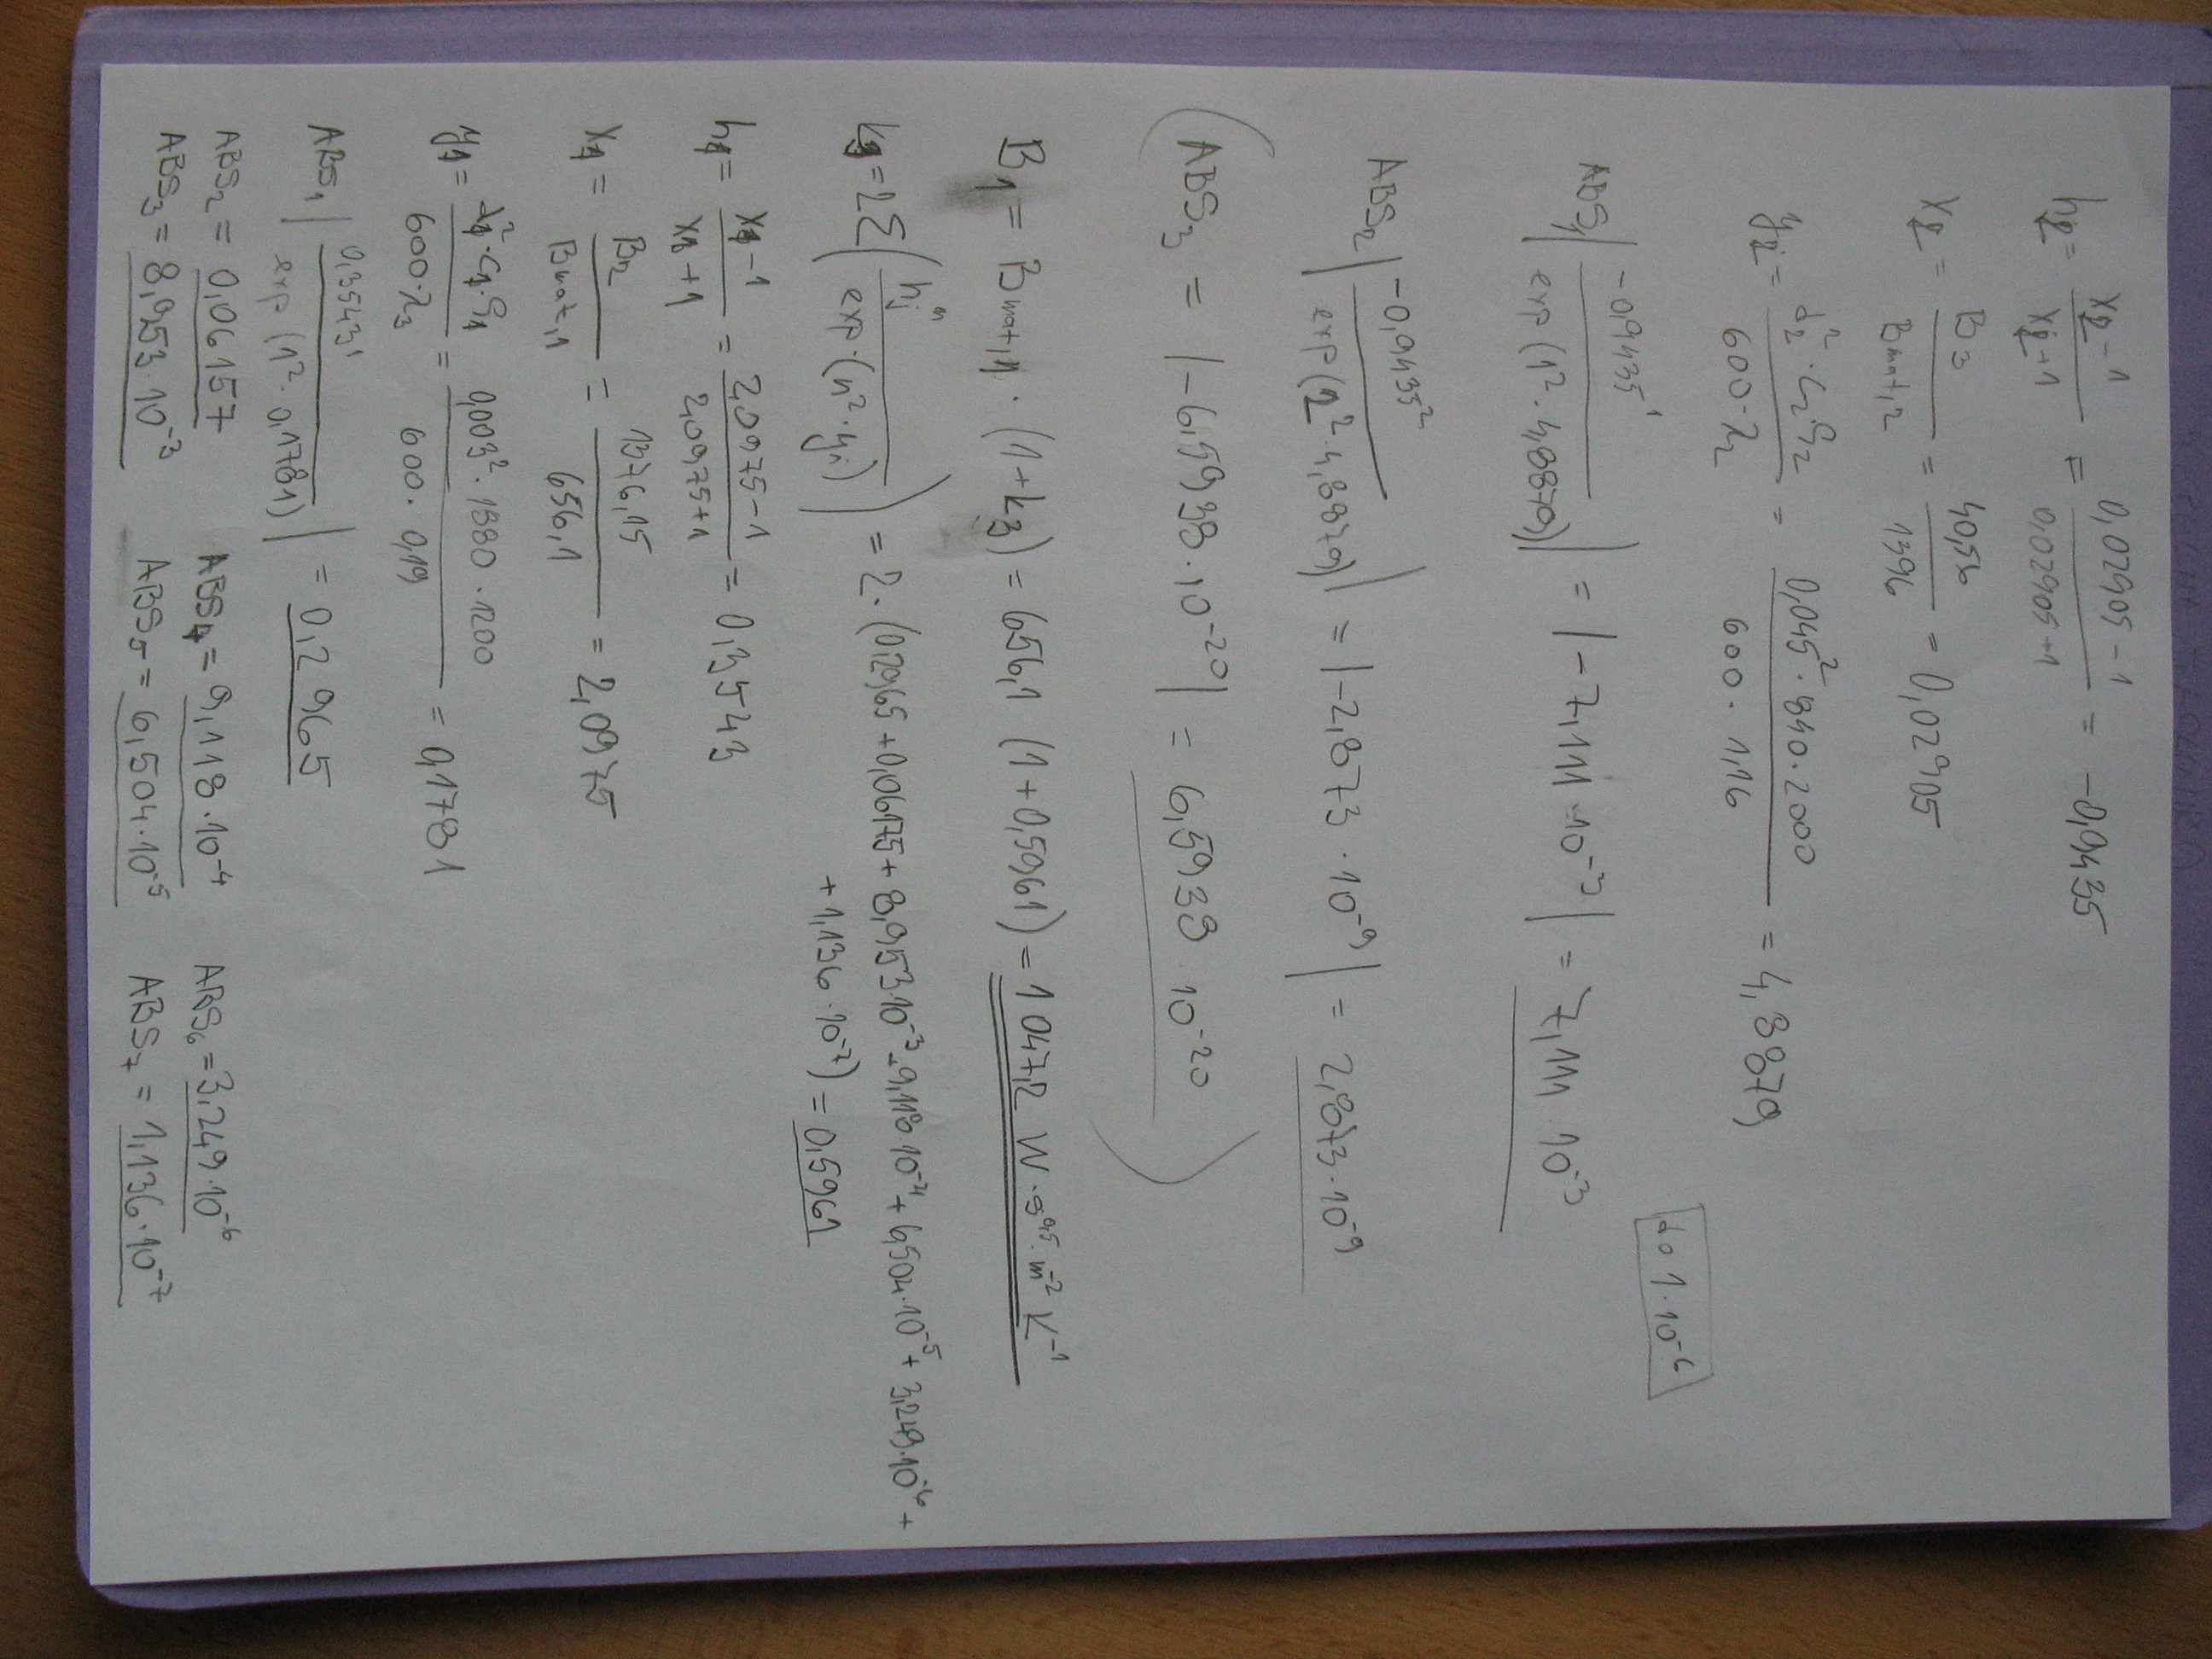 h₂ = (x₂ − 1)/(x₂ + 1) = (0,02905 − 1)/(0,02905 + 1) = −0,9435
x₂ = B₃/Bmat,2 = 40,56/1396 = 0,02905
y₂ = (d₂² · c₂ · ρ₂)/(600 · λ₂) = (0,045² · 840 · 2000)/(600 · 1,16) = 4,8879
do 1·10⁻⁶
ABS₁ |−0,9435¹/exp(1² · 4,8879)| = |−7,111 · 10⁻³| = 7,111 · 10⁻³
ABS₂ |−0,9435²/exp(2² · 4,8879)| = |−2,873 · 10⁻⁹| = 2,873 · 10⁻⁹
(ABS₃ = |−6,5938 · 10⁻²⁰| = 6,5938 · 10⁻²⁰)
B₁ = Bmat,1 · (1 + k₃) = 656,1 (1 + 0,5961) = 1047,2 W · s⁰·⁵ · m⁻² K⁻¹
k₃ = 2Σ(hⱼⁿ/exp · (n² · yⱼ)) = 2 · (0,2965 + 0,06175 + 8,953·10⁻³ - 9,118·10⁻⁴ + 6,504·10⁻⁵ + 3,249·10⁻⁶ +
+ 1,136 · 10⁻⁷) = 0,5961
h₁ = (x₁ − 1)/(x₁ + 1) = (2,0975 − 1)/(2,0975 + 1) = 0,3543
x₁ = B₂/Bmat,1 = 1376,15/656,1 = 2,0975
y₁ = (d₁² · c₁ · ρ₁)/(600 · λ₃) = (0,003² · 1880 · 1200)/(600 · 0,19) = 0,1781
ABS₁ |0,3543¹/exp (1² · 0,1781)| = 0,2965
ABS₂ = 0,06157 ABS₄ = 9,118 · 10⁻⁴ ABS₆ = 3,249 · 10⁻⁶
ABS₃ = 8,953 · 10⁻³ ABS₅ = 6,504 · 10⁻⁵ ABS₇ = 1,136 · 10⁻⁷